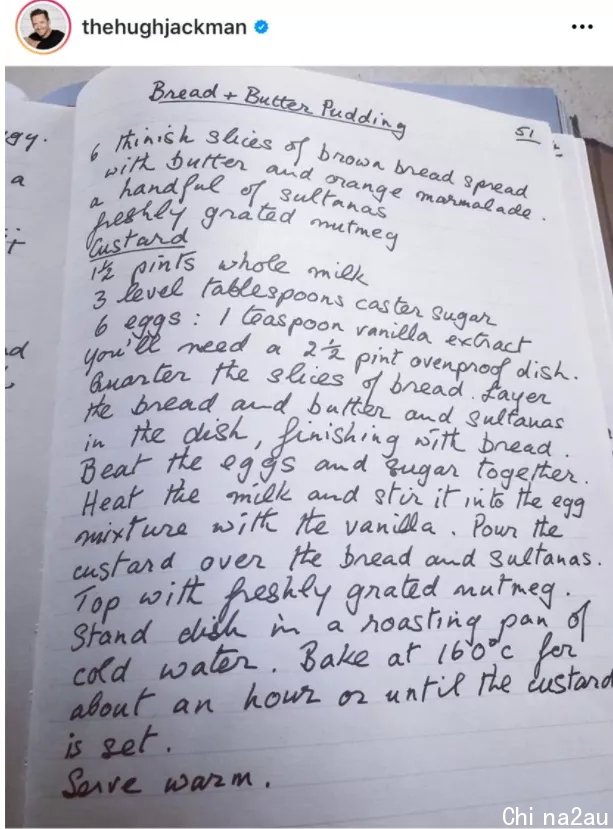 thehughjackman
Bread + Butter Pudding
51
gy.
a
6 thinish slices of brown bread spread
with butter and orange marmalade.
a handful of sultanas
freshly grated nutmeg
Custard
1½ pints whole milk
3 level tablespoons caster sugar
6 eggs: 1 teaspoon vanilla extract
You'll need a 2½ pint ovenproof dish.
Quarter the slices of bread. Layer
the bread and butter and sultanas
in the dish, finishing with bread.
Beat the eggs and sugar together.
Heat the milk and stir it into the egg
mixture with the vanilla. Pour the
custard over the bread and sultanas.
Top with freshly grated nutmeg.
Stand dish in a roasting pan of
cold water. Bake at 160°c for
about an hour or until the custard
is set.
Serve warm.
Chi na2au